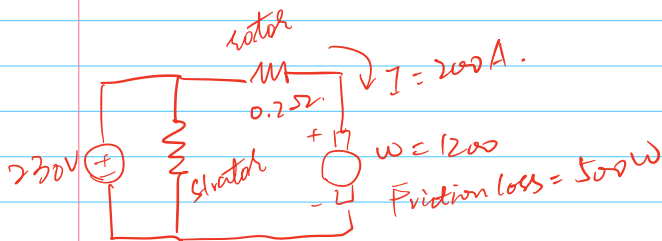 rotor
I = 200A.
0.2Ω.
+
230V
+
-
strator
ω = 1200
Friction loss = 500W
-